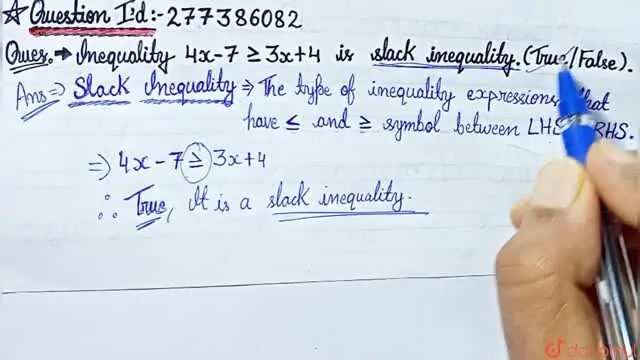 ★ Question Id:-277386082
Ques. → Inequality 4x-7 ≥ 3x+4 is slack inequality. (True/False).
Ans ⇒ Slack Inequality ⇒ The type of inequality expressions that
have ≤ and ≥ symbol between LHS RHS.
⇒ 4x - 7 ≥ 3x+4
∴ True, It is a slack inequality.